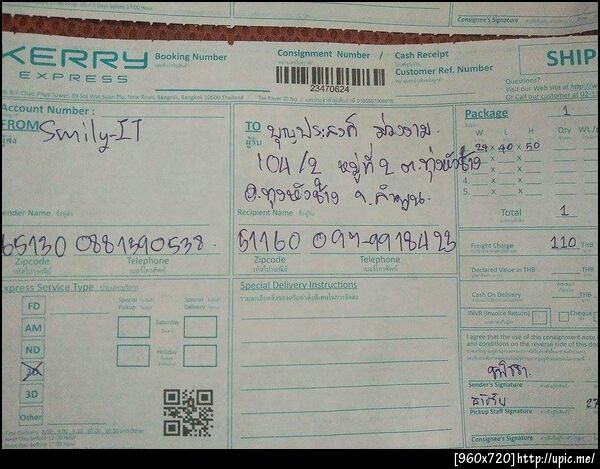 Consignee's Signature
KERRY
EXPRESS
Booking Number
Consignment Number /
23470624
Cash Receipt
Customer Ref. Number
SHIP
Questions?
Visit our Web site at http://w
Or Call our customer at 02-3
Account Number :
FROM Smily-IT
ผู้ส่ง
TO บุญประสงค์ ม่วงงาม
ผู้รับ
104/2 หมู่ที่ 2 ต.ทุ่งหัวช้าง
อ.ทุ่งหัวช้าง จ.ลำพูน
Package 1
W L H Qty. Wt./
1. 24 x 40 x 50
2.
3.
4.
5.
Total 1
Sender Name ชื่อผู้ส่ง
Recipient Name ชื่อผู้รับ
65130 0881590538
51160 097-9918423
Zipcode Telephone
รหัสไปรษณีย์ เบอร์โทรศัพท์
Zipcode Telephone
รหัสไปรษณีย์ เบอร์โทรศัพท์
Freight Charge 110 THB
Declared Value THB
Cash On Delivery THB
INVR (Invoice Return) Cheque
Express Service Type ประเภทบริการ
Special Pickup
Special Delivery
FD
AM
ND
2D
3D
Other
Saturday
Holiday
Special Delivery Instructions
I agree that the use of this consignment note
and conditions on the reverse side of this do
Sender's Signature
Pickup Staff Signature
Consignee's Signature
[960x720]http://upic.me/